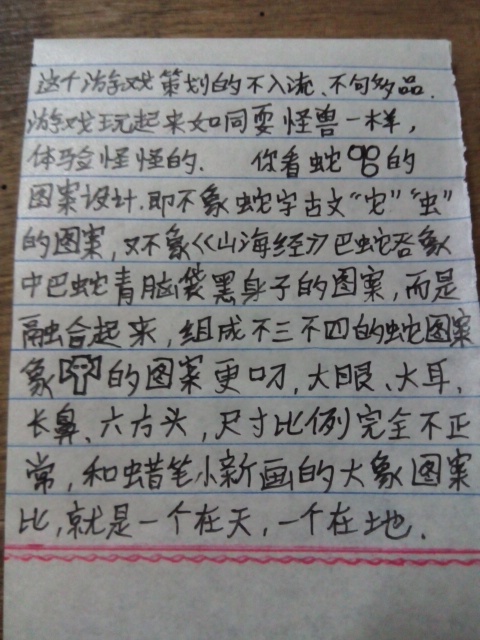 这个游戏策划的不入流、不够多品.
游戏玩起来如同耍怪兽一样,
体验怪怪的. 你看蛇的
图案设计.即不象蛇字古文“它”“虫”
的图案,又不象《山海经》巴蛇吞象
中巴蛇青脑袋黑身子的图案,而是
融合起来,组成不三不四的蛇图案
象的图案更叼,大眼、大耳、
长鼻、六方头,尺寸比例完全不正
常,和蜡笔小新画的大象图案
比,就是一个在天,一个在地.